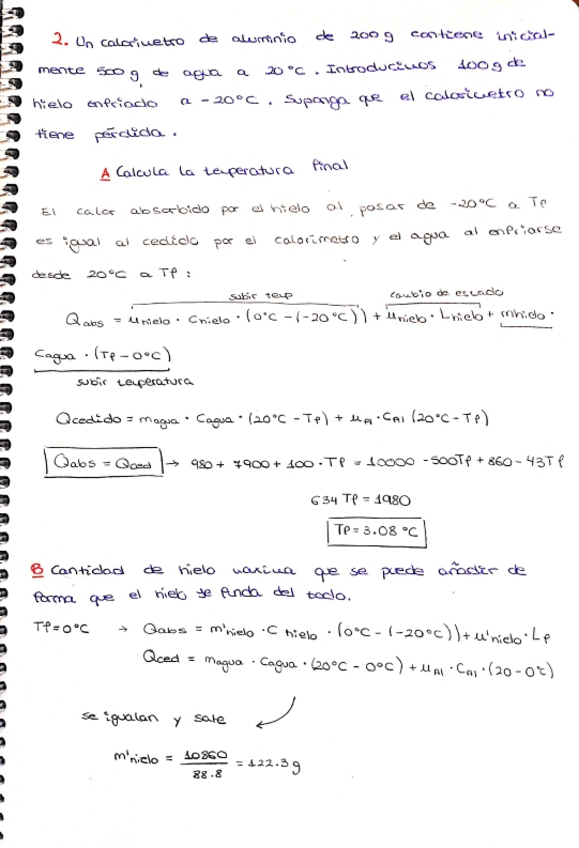 2. Un calorímetro de aluminio de 200 g contiene inicial-
mente 500 g de agua a 20°C. Introducimos 100 g de
hielo enfriado a -20°C. Suponga que el calorímetro no
tiene pérdida.
A Calcula la temperatura final
El calor absorbido por el hielo al pasar de -20°C a Tf
es igual al cedido por el calorímetro y el agua al enfriarse
desde 20°C a Tf:
subir temp cambio de estado
Qabs = mhielo · Chielo · (0°C - (-20°C)) + mhielo · Lhielo + mhielo ·
Cagua · (Tf - 0°C)
subir temperatura
Qcedido = magua · Cagua · (20°C - Tf) + mAl · CAl (20°C - Tf)
Qabs = Qced → 980 + 7900 + 100 · Tf = 10000 - 500Tf + 860 - 43Tf
634 Tf = 1980
Tf = 3.08 °C
B Cantidad de hielo maxima que se puede añadir de
forma que el hielo se funda del todo.
Tf = 0°C → Qabs = m'hielo · C hielo · (0°C - (-20°C)) + m'hielo · Lf
Qced = magua · Cagua · (20°C - 0°C) + mAl · CAl · (20 - 0°C)
se igualan y sale
m'hielo = 10860/88.8 = 122.3 g